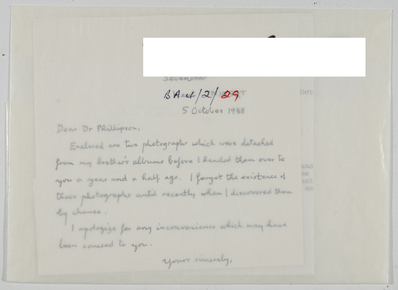 BAar/2/29
5 October 1988
Dear Dr Phillipson,
Enclosed are two photographs which were detached
from my brother's albums before I handed them over to
you a year and a half ago. I forgot the existence of
these photographs until recently when I discovered them
by chance.
I apologize for any inconvenience which may have
been caused to you.
Yours sincerely,